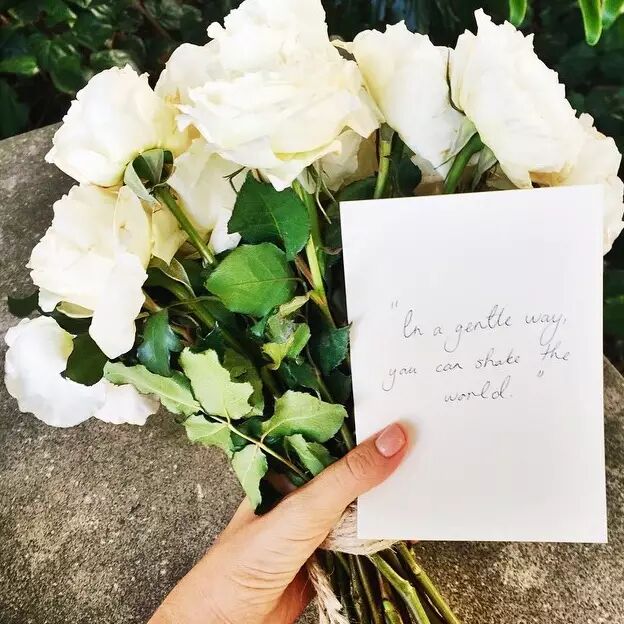 "In a gentle way,
you can shake the
world."